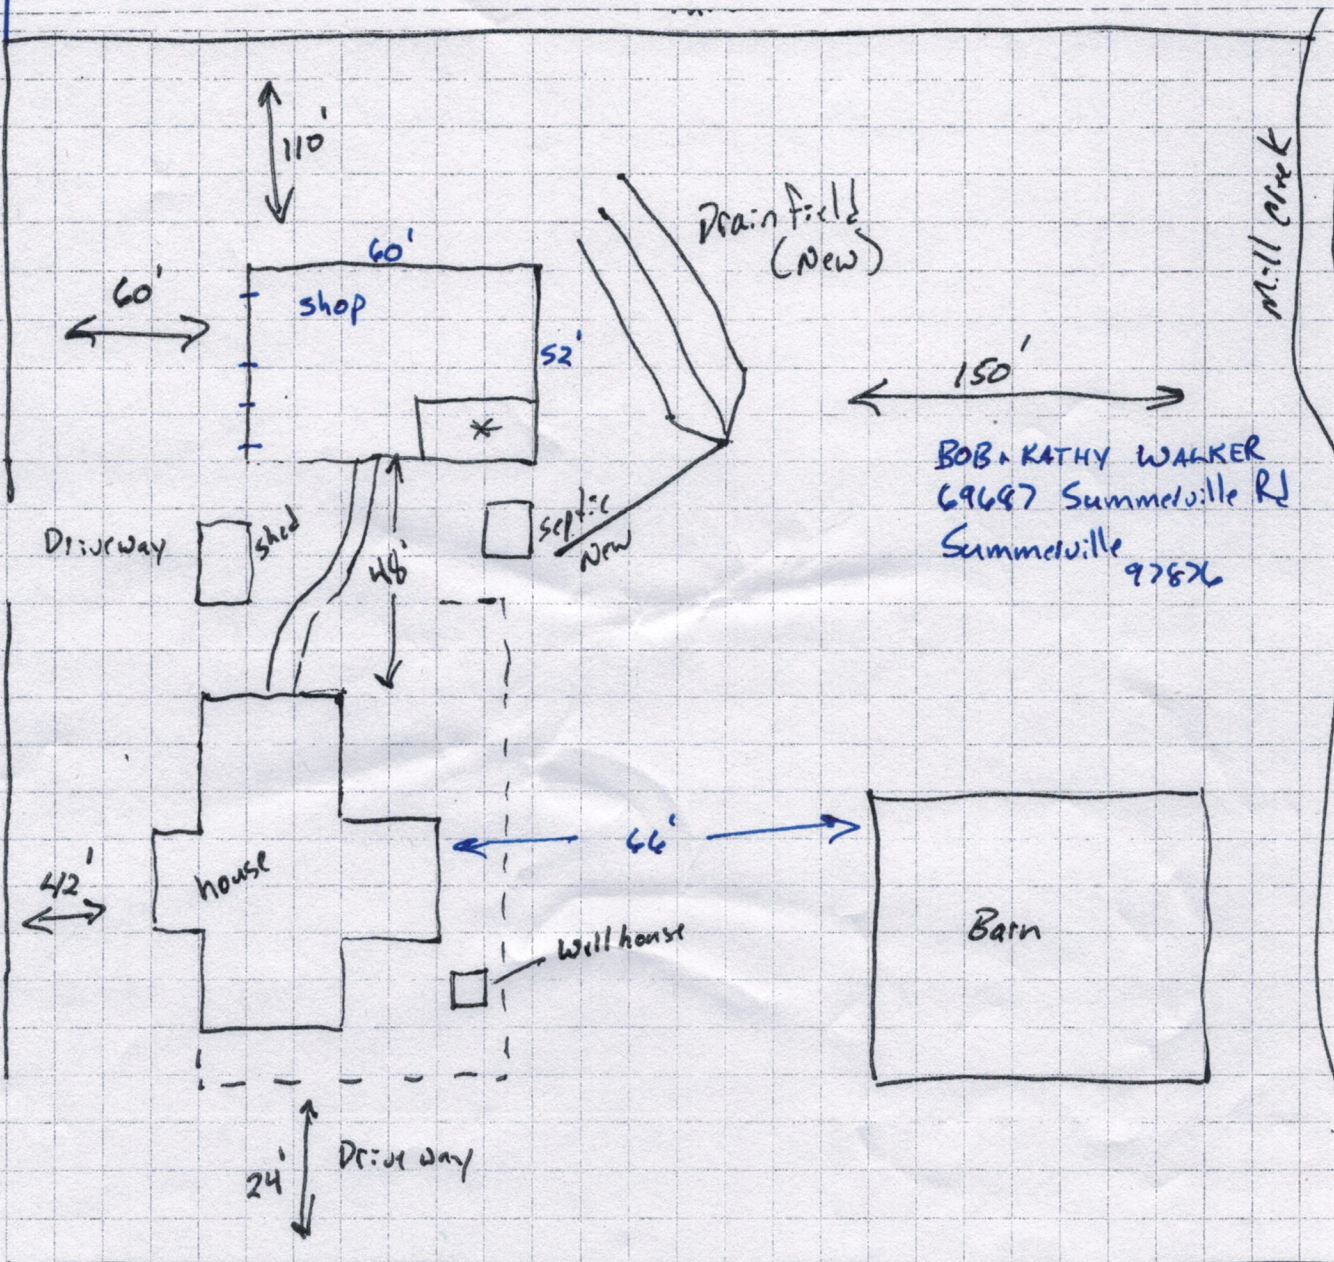 110'
60'
60'
shop
52'
Drainfield
(New)
Mill Creek
150'
BOB & KATHY WALKER
69687 Summerville Rd
Summerville
97876
Driveway
shed
48'
septic
New
42'
house
66'
Wellhouse
Barn
24'
Driveway